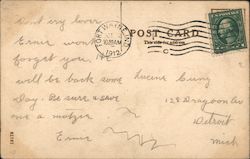 Dont cry lover
Ernie wont
forget you. He
will be back some
day. Be sure & save
me a
Ernie
FORT WAYNE, IND.
10:30 AM
1912
POST CARD
This side for address.
Lucine Cuny
128 Dragoon Av
Detroit
Mich